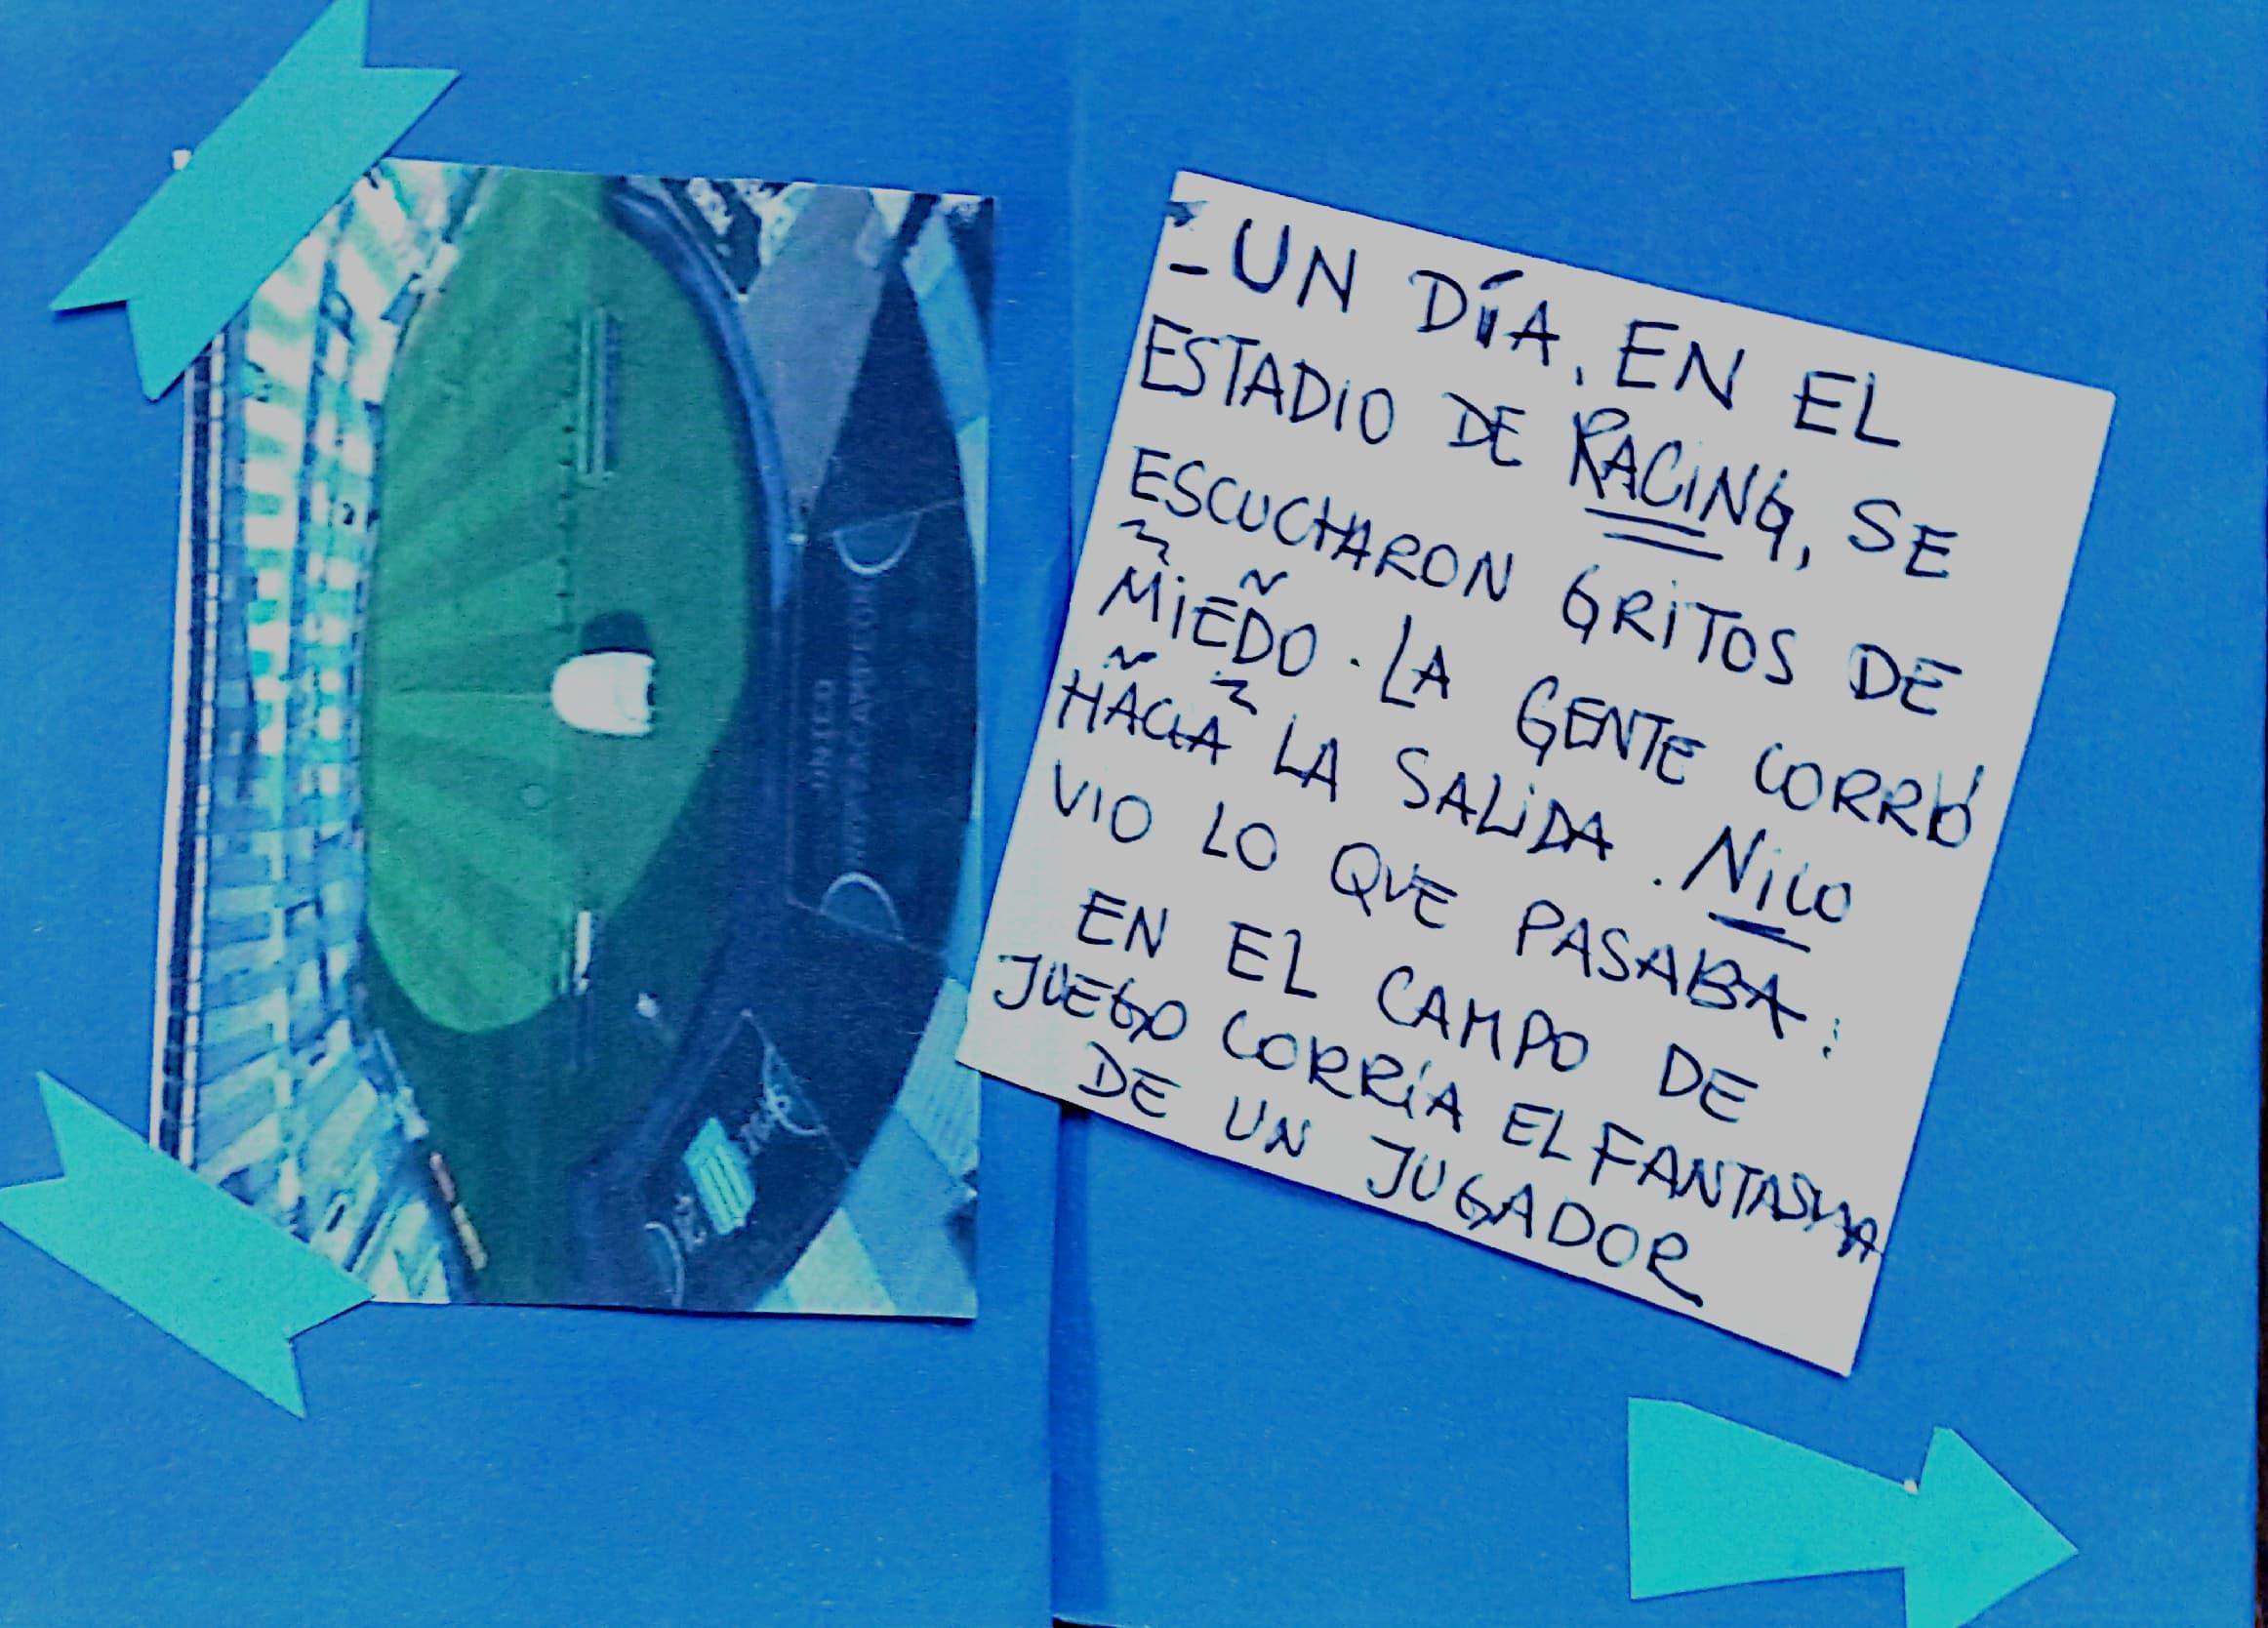 - UN DÍA, EN EL
ESTADIO DE RACING, SE
ESCUCHARON GRITOS DE
MIEDO. LA GENTE CORRIÓ
HACIA LA SALIDA. NICO
VIO LO QUE PASABA:
EN EL CAMPO DE
JUEGO CORRÍA EL FANTASMA
DE UN JUGADOR